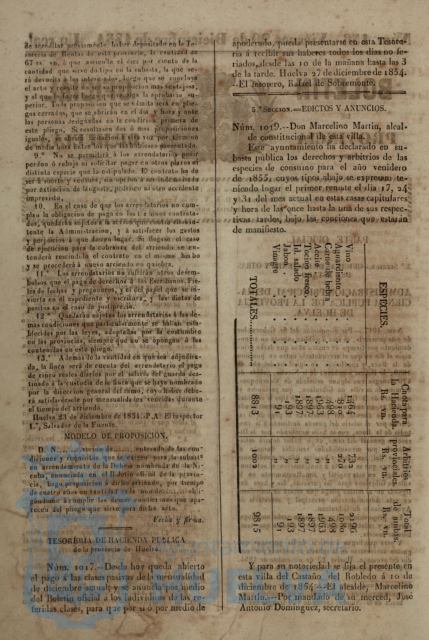 de acreditar préviamente haber depositado en la Te-
sorería de Rentas de esta provincia, la cantidad de
67 rs. vn. á que asciende el diez por ciento de la
cantidad que sirve de tipo en la subasta, la que se-
rá devuelta á los interesados luego que se concluya
el acto y resulte de ser su proposicion mas ventajosa,
perior. Toda proposicion que se admita será en plie-
gos cerrados, que se abrirán en el dia y hora y ante
las personas designadas en la condicion primera de
este pliego. Si resultasen dos ó mas proposiciones
iguales, se abrirá licitacion á viva voz por término
de media hora entre los que las hubiesen presentado.
9.ª No se permitirá á los arrendatarios pedir
perdon ó rebaja ni solicitar pagar en otros plazos ni
distinta especie que lo estipulado. El contrato ha de
ser á suerte y ventura, sin opcion á ser indemnizados
por extincion de langosta, pedrisco ni otro accidente
imprevisto.
10. En el caso de que los arrendatarios no cum-
plan la obligacion de pago en los términos contrata-
dos, quedarán sujetos á la accion que contra ellos in-
tente la Administracion, y á satisfacer los gastos
y perjuicios á que dieren lugar. Si llegase el caso
de ejecucion para la cobranza del arriendo se en-
tenderá rescindido el contrato en el mismo hecho
y se procederá á nuevo arriendo en quiebra.
11. Los arrendatarios no sufrirán otros desem-
bolsos que el pago de derechos á los Escribanos, Fie-
les de fechos y pregoneros, y el del papel que se in-
vierta en el expediente y escritura, y las dietas de
peritos en el caso de justiprecio.
12. Quedarán sujetos los arrendatarios á las de-
mas condiciones que particularmente se hallan esta-
blecidas por las leyes, adoptadas por la costumbre
en esta provincia, siempre que no se opongan á las
contenidas en este pliego.
13.ª Ademas de la cantidad en que sea adjudica-
da la finca será de cuenta del arrendatario el pago
de cinco reales diarios por el salario del guarda des-
tinado á la custodia de la finca que se haya nombrado
por la direccion general del ramo, cuyo haber debe-
rá satisfacérsele por mensualidades vencidas durante
el tiempo del arriendo.
Huelva 23 de diciembre de 1854.-P. A. El inspector
1.º, Salvador de la Fuente.
MODELO DE PROPOSICION.
D. N.... vecino de.... enterado de las con-
diciones y requisitos que se exigen para la subasta
y arrendamiento de la Dehesa nombrada de
anunciada en el Boletin oficial de la provin-
cia, hago proposicion á dicho arriendo, por tiempo
de cuatro años en cantidad de
gándome á cumplir las demas condiciones que apa-
recen del pliego que sirve para dicho acto.
Fecha y firma.
TESORERIA DE HACIENDA PUBLICA
de la provincia de Huelva.
Núm. 1017.--Desde hoy queda abierto
el pago á las clases pasivas de la mensualidad
de diciembre actual, y se anuncia por medio
del Boletin oficial á los individuos de las re-
feridas clases, para que por sí ó por medio de
apoderado, puedan presentarse en esta Tesore-
ría á recibir sus haberes todos los dias no fe-
riados, desde las 10 de la mañana hasta las 3
de la tarde. Huelva 27 de diciembre de 1854.
--El tesorero, Rafael de Sobremonte.
5.ª SECCION.--EDICTOS Y ANUNCIOS.
Núm. 1019.--Don Marcelino Martin, alcal-
de constitucional de esta villa.
Este ayuntamiento ha declarado en su-
basta pública los derechos y arbitrios de las
especies de consumo para el año venidero
de 1855, cuyos tipos abajo se expresan: te-
niendo lugar el primer remate el dia 17, 24
y 31 del mes actual en estas casas capitulares
y hora de las once hasta la una de sus respec-
tivas tardes, bajo las condiciones que estarán
de manifiesto.
ESPECIES.
Cuota para la Hacienda. Rs. vn.
Arbitrios provinciales. Rs. vn.
Total de ambas. Rs. vn.
Vino
Aguardiente
Carnes de hebra
Aceite
Tocino fresco
Id. salado
Jabon
Vinagre
TOTALES. 8813 1002 9815
Y para su notoriedad se fija el presente en
esta villa del Castaño del Robledo á 10 de
diciembre de 1854.--El alcalde, Marcelino
Martin.--Por mandado de su merced, José
Antonio Dominguez, secretario.